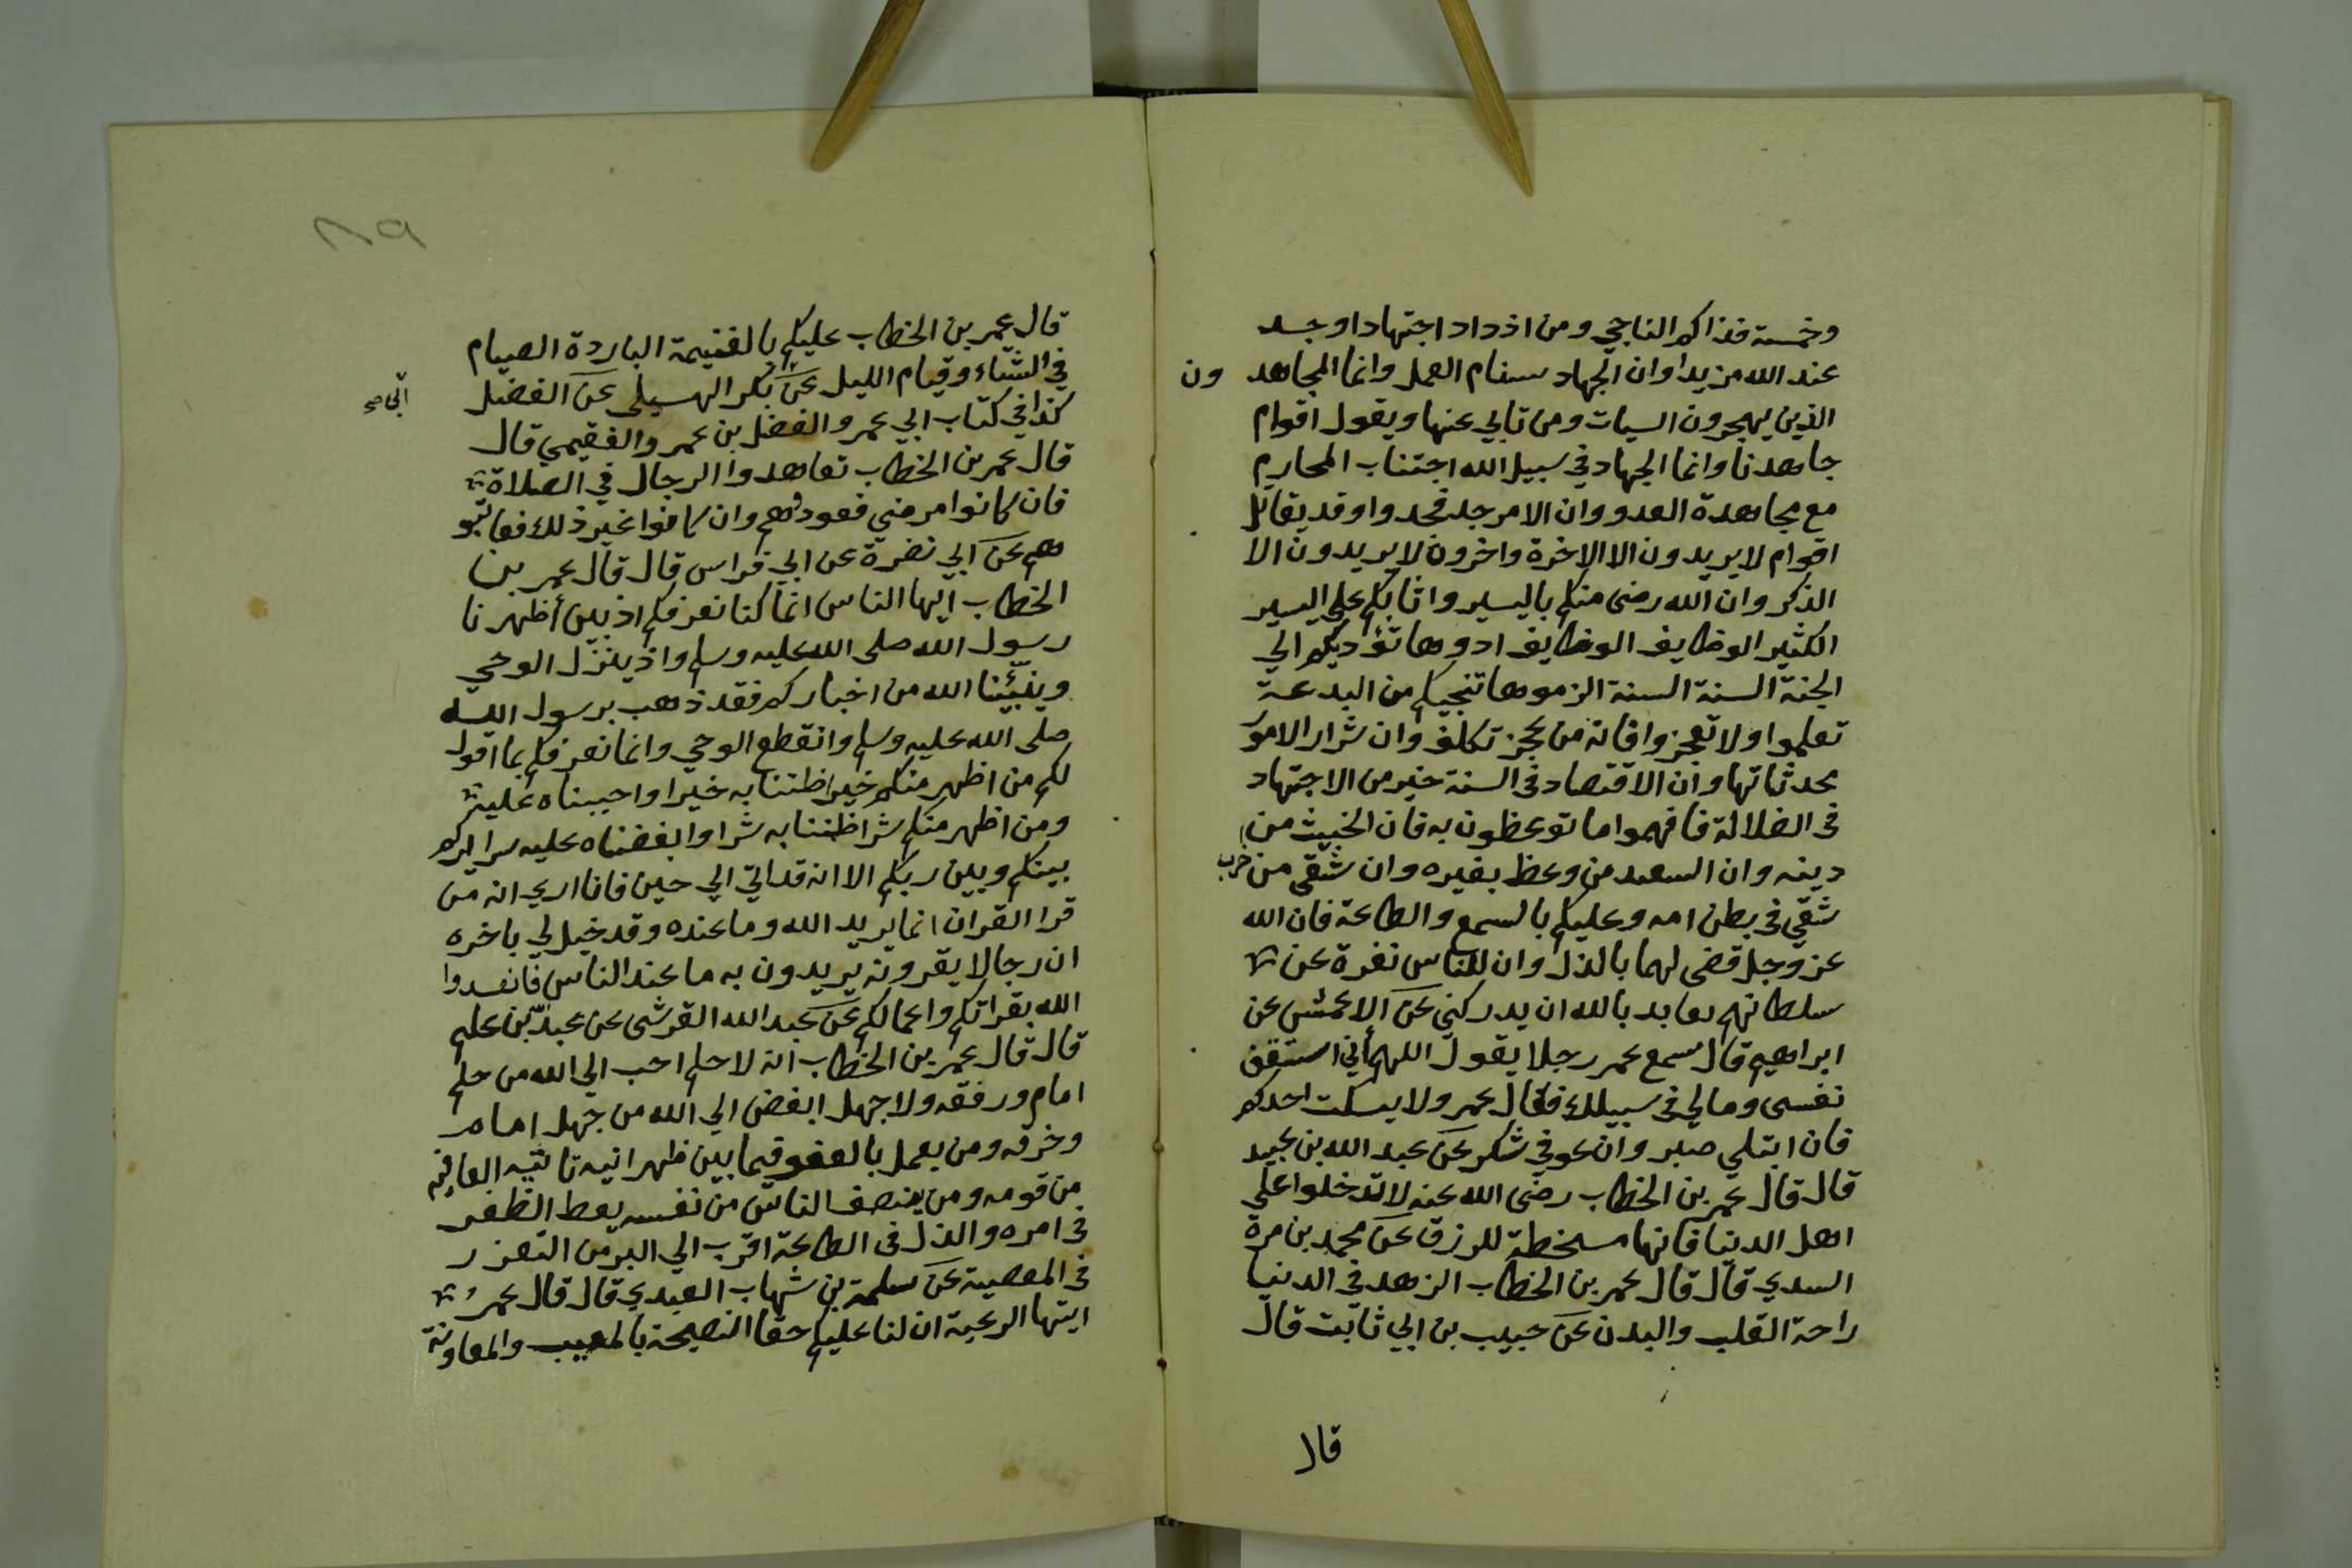 وخمسة فذاكم الناجي ومن ازداد اجتهادا وجد
عند الله مزيدا وان الجهاد سنام العمل وانما المجاهد ون
الذين يهجرون السيات ومن تابي عنها ويقول اقوام
جاهدنا وانما الجهاد في سبيل الله اجتناب المحارم
مع مجاهدة العدو وان الامر جد فجدوا وقد يقاتل
اقوام لا يريدون الا الاخرة واخرون لا يريدون الا
الذكر وان الله رضى منكم باليسير واثابكم علي اليسير
الكثير الوظايف الوظايف ادوها تؤديكم الي
الجنة السنة السنة الزموها تنجيكم من البدعة
تعلموا ولا تعجزوا فانه من عجز تكلف وان شرار الامور
محدثاتها وان الاقتصاد في السنة خير من الاجتهاد
في الضلالة فافهموا ما توعظون به فان الخبيث من
دينه وان السعيد من وعظ بغيره وان شقى من خرب
شقي في بطن امه وعليكم بالسمع والطاعة فان الله
عز وجل قضى لهما بالذل وان للناس نفرة عن
سلطانهم بعابد بالله ان يدركني عن الاعمش عن
ابراهيم قال سمع عمر رجلا يقول اللهم أني استقف
نفسى ومالي في سبيلك فقال عمر ولا يسكت احدكم
فان ابتلي صبر وان عوفي شكر عن عبد الله بن عبيد
قال قال عمر بن الخطاب رضى الله عنه لا تدخلوا علي
اهل الدنيا فانها مسخطة للرزق عن محمد بن مرة
السدي قال قال عمر بن الخطاب الزهد في الدنيا
راحة القلب والبدن عن حبيب بن ابي ثابت قال
قال
٨٩
قال عمر بن الخطاب عليكم بالغنيمة الباردة الصيام
في الشتاء وقيام الليل عن بكر الهسيلى عن الفضل
كذا في كتاب ابي عمر والفضل بن عمر والفقيمي قال
قال عمر بن الخطاب تعاهدوا الرجال في الصلاة
فان كانوا مرضي فعودوهم وان كانوا غير ذلك فعاتبو
هم عن ابي نضرة عن ابي فراس قال قال عمر بن
الخطاب ايها الناس انما كنا نعرفكم اذ بين أظهرنا
رسول الله صلى الله عليه وسلم واذ ينزل الوحي
وينبّئنا الله من اخباركم فقد ذهب برسول الله
صلى الله عليه وسلم وانقطع الوحي وانما نعرفكم بما اقول
لكم من اظهر منكم خيرا ظننا به خيرا واحببناه عليه
ومن اظهر منكم شرا ظننا به شرا وابغضناه عليه سرايركم
بينكم وبين ربكم الا انه قد اتي الي حين فانا اري انه من
قرا القران انما يريد الله وما عنده وقد خيل لي باخره
ان رجالا يقرونه يريدون به ما عند الناس فانفسدوا
الله بقراتكم واعمالكم عن عبد الله القرشى عن عبد بن عليم
قال قال عمر بن الخطاب انه لا حلم احب الي الله من حلم
امام ورفقه ولا جهل ابغض الي الله من جهل امام
وخرقه ومن يعمل بالعفو فيما بين ظهرانيه تاتيه العافية
من قومه ومن ينصف الناس من نفسه يعط الظفر
في امره والذل في الطاعة اقرب الي البر من التعزر
في المعصية عن سلمة بن شهاب العبدي قال قال عمر
ايتها الرعية ان لنا عليكم حقا النصيحة بالمغيب والمعاونة